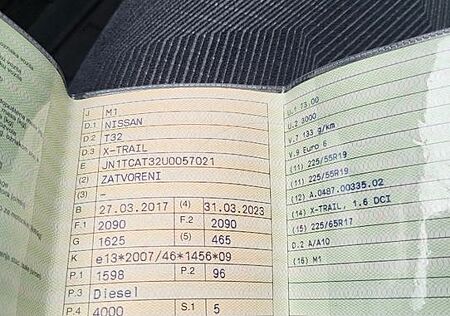 J M1
D.1 NISSAN
D.2 T32
D.3 X-TRAIL
E JN1TCAT32U0057021
(2) ZATVORENI
(3) –
B 27.03.2017 (4) 31.03.2023
F.1 2090 F.2 2090
G 1625 (5) 465
K e13*2007/46*1456*09
P.1 1598 P.2 96
P.3 Diesel
P.4 4000 S.1 5
U.1 73.00
U.2 3000
V.7 133 g/km
V.9 Euro 6
(11) 225/55R19
(11) 225/55R19
(12) A.0487.00335.02
(14) X-TRAIL, 1.6 DCI
(15) 225/65R17
D.2 A/A10
(16) M1